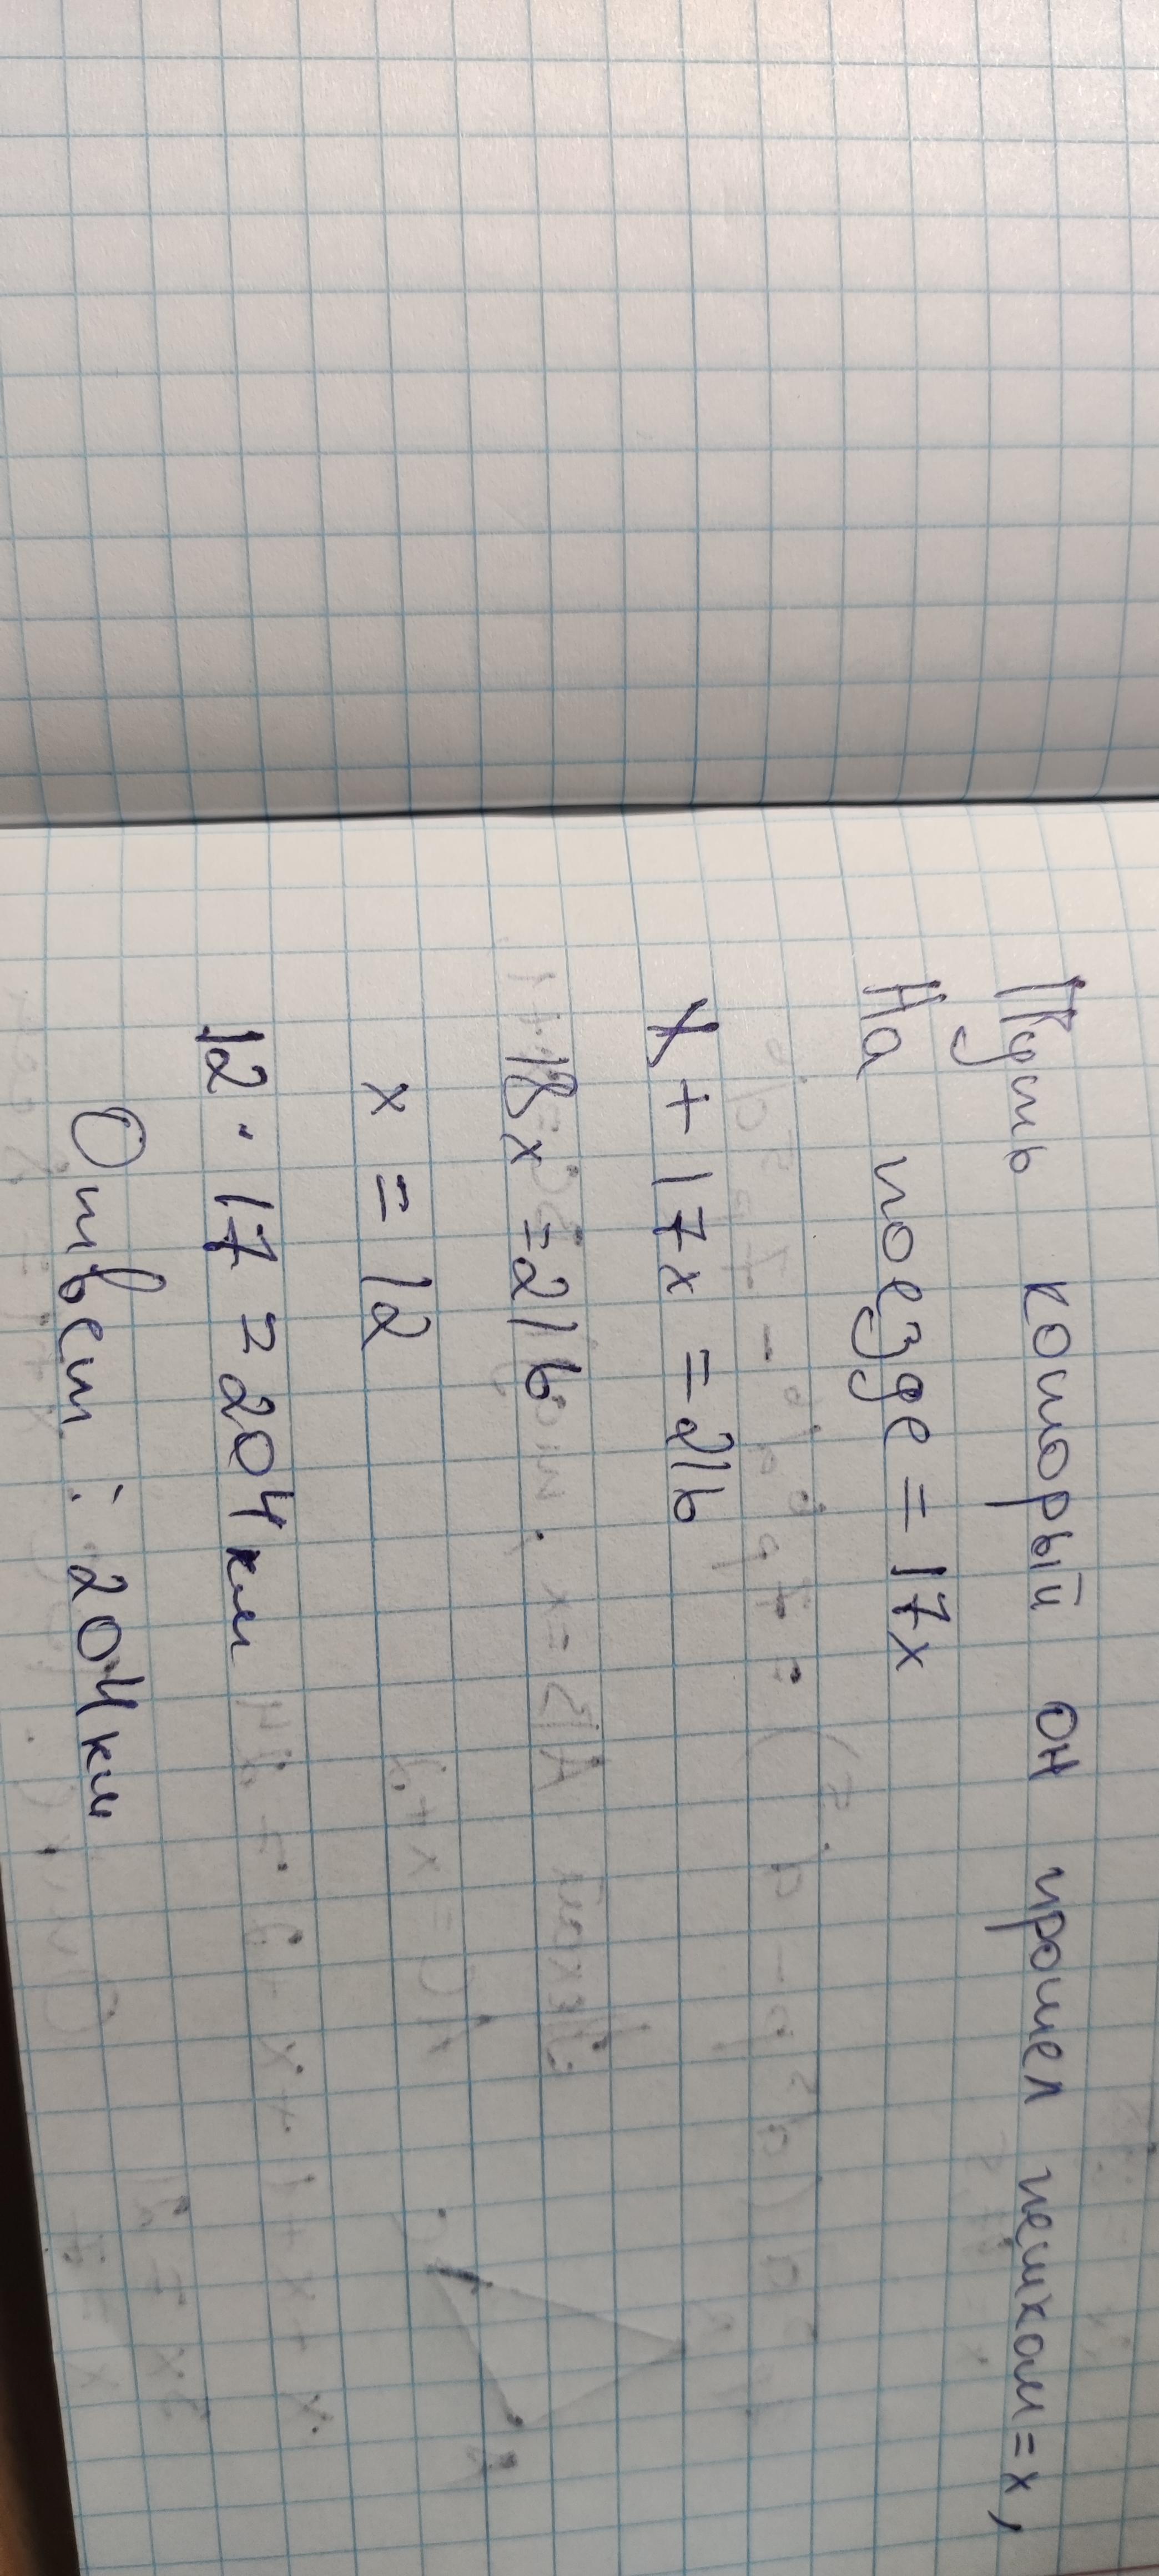 Путь который он прошел пешком = x,
На поезде = 17x
x + 17x = 216
18x = 216
x = 12
12 · 17 = 204 км
Ответ : 204 км